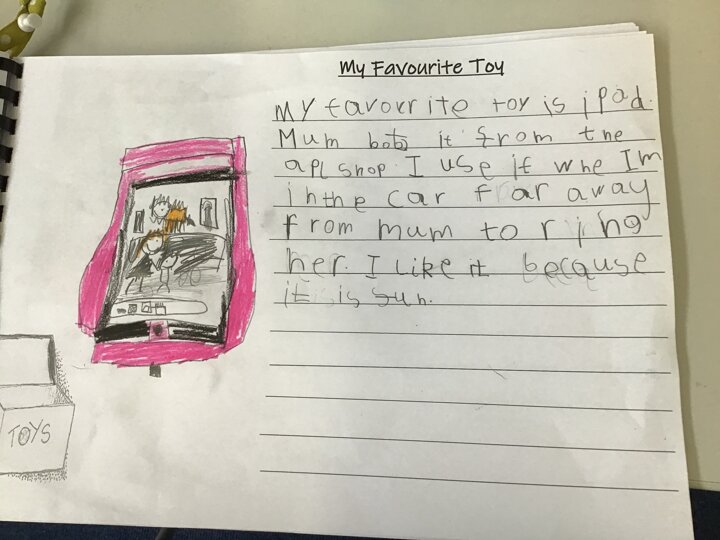 My Favourite Toy
My favourite toy is ipad.
Mum bots it from the
apl shop. I use it whe Im
inthe car far away
from mum to ring
her. I like it because
it is fun.
TOYS